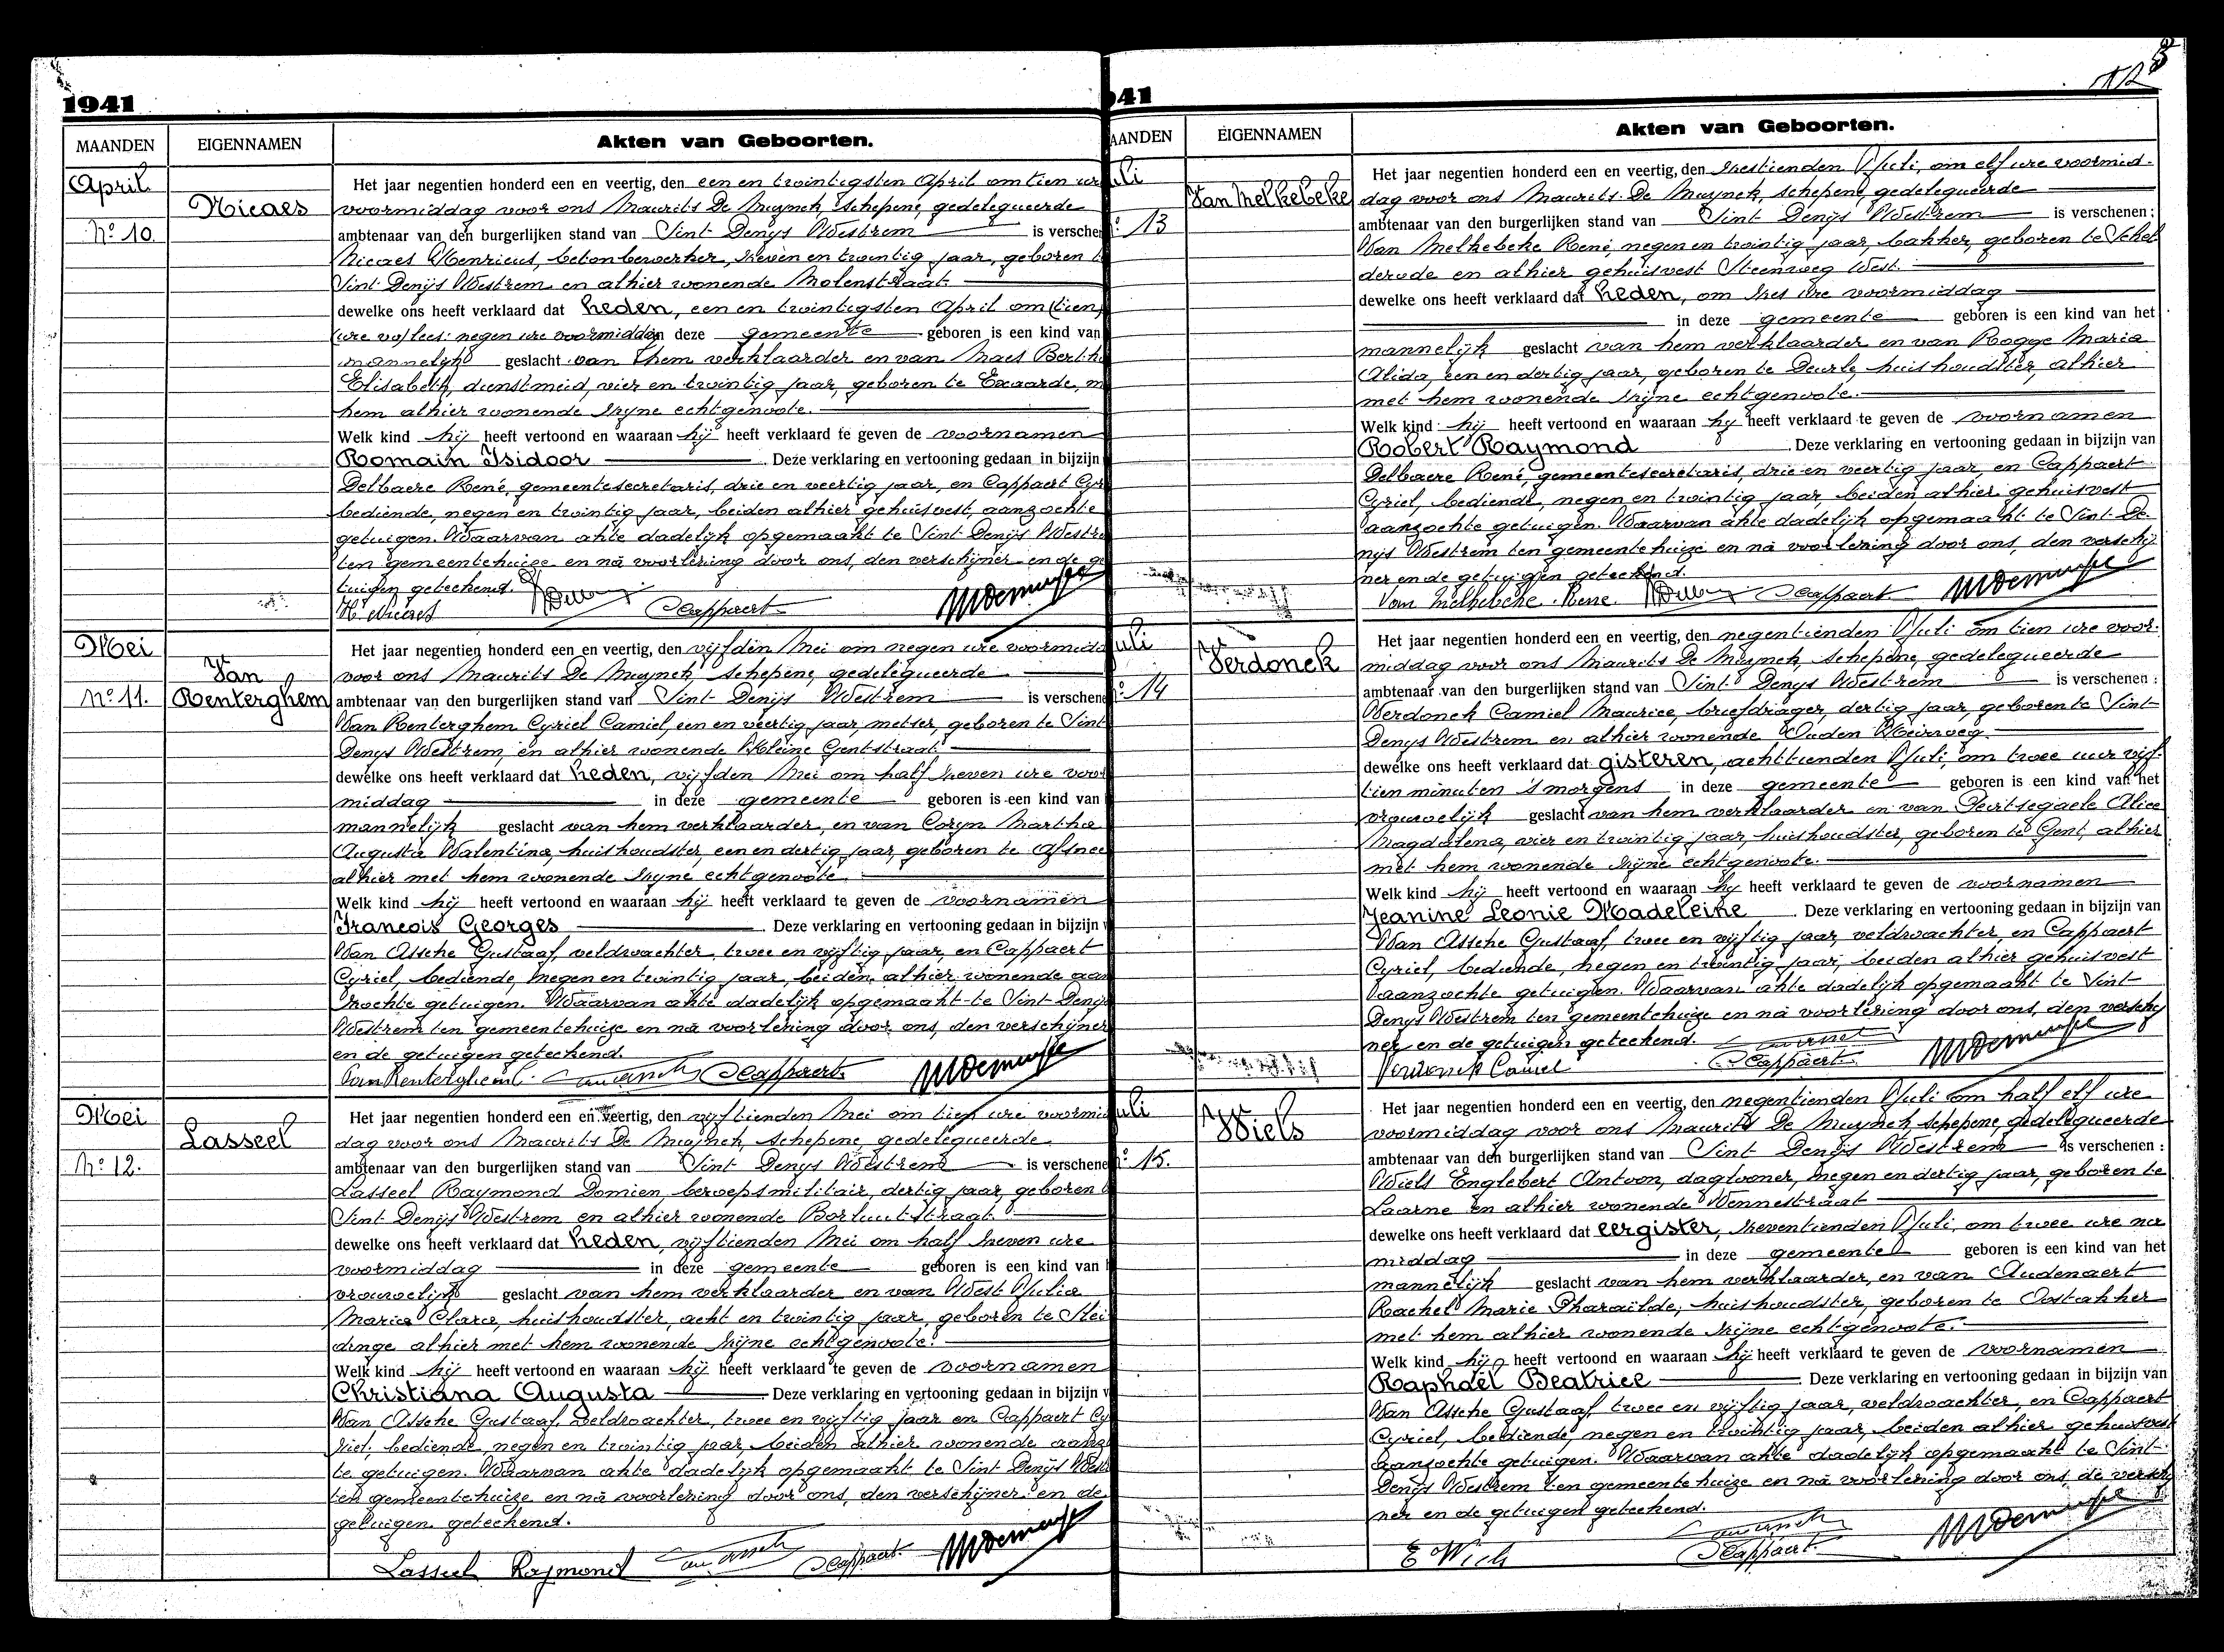 1941
MAANDEN
EIGENNAMEN
Akten van Geboorten.
April
Nicaes
No 10.
Het jaar negentien honderd een en veertig, den een en twintigsten April om tien ure
voormiddag voor ons Maurits De Muynck, schepene, gedelegueerde
ambtenaar van den burgerlijken stand van Sint Denijs Westrem is verschene
Nicaes Henricus, betonbewerker, zeven en twintig jaar, geboren te
Sint Denijs Westrem en alhier wonende Molenstraat
dewelke ons heeft verklaard dat heden, een en twintigsten April om (tien)
(ure vo) lees: negen ure voormiddag in deze gemeente geboren is een kind van
mannelijk geslacht van hem verklaarder en van Maes Bertha
Elisabeth, dienstmeid, vier en twintig jaar, geboren te Exaarde, m
hem alhier wonende zijne echtgenoote.
Welk kind hij heeft vertoond en waaraan hij heeft verklaard te geven de voornamen
Romain Isidoor . Deze verklaring en vertooning gedaan in bijzijn
Delbaere René, gemeentesecretaris, drie en veertig jaar, en Cappaert Cyr
bediende, negen en twintig jaar, beiden alhier gehuisvest, aanzochte
getuigen. Waarvan akte dadelijk opgemaakt te Sint Denijs Westre
ten gemeentehuize en na voorlezing door ons, den verschijner en de ge
tuigen geteekend.
H. Nicaes Cappaert MDemuynck
Mei
Van
Renterghem
No 11.
Het jaar negentien honderd een en veertig, den vijfden Mei om negen ure voormidd
voor ons Maurits De Muynck, schepene, gedelegueerde
ambtenaar van den burgerlijken stand van Sint Denijs Westrem is verschene
Van Renterghem Cyriel Camiel, een en veertig jaar, metser, geboren te Sint
Denys Westrem, en alhier wonende Kleine Gentstraat
dewelke ons heeft verklaard dat heden, vijfden Mei om half zeven ure voor
middag in deze gemeente geboren is een kind van
mannelijk geslacht van hem verklaarder, en van Coryn Martha
Augusta Valentina, huishoudster, een en dertig jaar, geboren te Afsnee
alhier met hem wonende zijne echtgenoote.
Welk kind hij heeft vertoond en waaraan hij heeft verklaard te geven de voornamen
Francois Georges . Deze verklaring en vertooning gedaan in bijzijn v
Van Assche Gustaaf, veldwachter, twee en vijftig jaar, en Cappaert
Cyriel, bediende, negen en twintig jaar, beiden alhier wonende aan
zochte getuigen. Waarvan akte dadelijk opgemaakt te Sint Denys
Westrem ten gemeentehuize en na voorlezing door ons, den verschijner
en de getuigen geteekend.
Van Renterghem C. Van Assche Cappaert MDemuynck
Mei
Lasseel
No 12.
Het jaar negentien honderd een en veertig, den vijftienden Mei om tien ure voormid
dag voor ons Maurits De Muynck, schepene, gedelegueerde
ambtenaar van den burgerlijken stand van Sint Denys Westrem is verschene
Lasseel Raymond Domien, beroepsmilitair, dertig jaar, geboren te
Sint Denijs Westrem en alhier wonende Borluutstraat
dewelke ons heeft verklaard dat heden, vijftienden Mei om half zeven ure
voormiddag in deze gemeente geboren is een kind van h
vrouwelijk geslacht van hem verklaarder en van West Julia
Maria Clara, huishoudster, acht en twintig jaar, geboren te Slei
dinge alhier met hem wonende zijne echtgenoote.
Welk kind hij heeft vertoond en waaraan hij heeft verklaard te geven de voornamen
Christiana Augusta Deze verklaring en vertooning gedaan in bijzijn v
Van Assche Gustaaf, veldwachter, twee en vijftig jaar en Cappaert Cy
riel, bediende, negen en twintig jaar, beiden alhier wonende aanzo
te getuigen. Waarvan akte dadelijk opgemaakt te Sint Denijs West
ten gemeentehuize en na voorlezing door ons, den verschijner en de
getuigen geteekend.
Lasseel Raymond Van Assche Cappaert MDemuynck
41
AANDEN
EIGENNAMEN
Akten van Geboorten.
uli
Van Melkebeke
o 13
Het jaar negentien honderd een en veertig, den zestienden Juli, om elf ure voormid-
dag voor ons Maurits De Muynck, schepene, gedelegueerde
ambtenaar van den burgerlijken stand van Sint Denijs Westrem is verschenen:
Van Melkebeke René, negen en twintig jaar, bakker, geboren te Schel
derode en alhier gehuisvest Steenweg West.
dewelke ons heeft verklaard dat heden, om zes ure voormiddag
in deze gemeente geboren is een kind van het
mannelijk geslacht van hem verklaarder en van Rogge Maria
Alida, een en dertig jaar, geboren te Deurle, huishoudster, alhier
met hem wonende zijne echtgenoote.
Welk kind hij heeft vertoond en waaraan hij heeft verklaard te geven de voornamen
Robert Raymond . Deze verklaring en vertooning gedaan in bijzijn van
Delbaere René, gemeentesecretaris, drie en veertig jaar, en Cappaert
Cyriel, bediende, negen en twintig jaar, beiden alhier gehuisvest
aanzochte getuigen. Waarvan akte dadelijk opgemaakt te Sint De
nijs Westrem ten gemeentehuize en na voorlezing door ons, den verschij
ner en de getuigen geteekend.
Van Melkebeke Rene. Cappaert MDemuynck
uli
Verdonck
o 14
Het jaar negentien honderd een en veertig, den negentienden Juli om tien ure voor-
middag voor ons Maurits De Muynck, schepene, gedelegueerde
ambtenaar van den burgerlijken stand van Sint Denys Westrem is verschenen:
Verdonck Camiel Maurice, briefdrager, dertig jaar, geboren te Sint
Denys Westrem en alhier wonende Ouden Heirweg
dewelke ons heeft verklaard dat gisteren, achttienden Juli, om twee uur vijf-
tien minuten 's morgens in deze gemeente geboren is een kind van het
vrouwelijk geslacht van hem verklaarder en van Gevitsegaele Alice
Magdalena, vier en twintig jaar, huishoudster, geboren te Gent, alhier
met hem wonende zijne echtgenoote.
Welk kind hij heeft vertoond en waaraan hij heeft verklaard te geven de voornamen
Jeanine Leonie Madeleine . Deze verklaring en vertooning gedaan in bijzijn van
Van Assche Gustaaf, twee en vijftig jaar, veldwachter, en Cappaert
Cyriel, bediende, negen en twintig jaar, beiden alhier gehuisvest
aanzochte getuigen. Waarvan akte dadelijk opgemaakt te Sint-
Denys Westrem ten gemeentehuize en na voorlezing door ons, den verschij
ner en de getuigen geteekend. Van Assche
Verdonck Camiel Cappaert MDemuynck
uli
Wiels
o 15.
Het jaar negentien honderd een en veertig, den negentienden Juli om half elf ure
voormiddag voor ons Maurits De Muynck, schepene, gedelegueerde
ambtenaar van den burgerlijken stand van Sint Denijs Westrem is verschenen:
Wiels Englebert Antoon, daglooner, negen en dertig jaar, geboren te
Laarne en alhier wonende Vennestraat
dewelke ons heeft verklaard dat eergister, zeventienden Juli, om twee ure na
middag in deze gemeente geboren is een kind van het
mannelijk geslacht van hem verklaarder, en van Audenaert
Rachel Marie Pharaïlde, huishoudster, geboren te Oostakker
met hem alhier wonende zijne echtgenoote.
Welk kind hij heeft vertoond en waaraan hij heeft verklaard te geven de voornamen
Raphaël Beatrice . Deze verklaring en vertooning gedaan in bijzijn van
Van Assche Gustaaf twee en vijftig jaar, veldwachter, en Cappaert
Cyriel, bediende, negen en twintig jaar, beiden alhier gehuisvest
aanzochte getuigen. Waarvan akte dadelijk opgemaakt te Sint-
Denys Westrem ten gemeentehuize en na voorlezing door ons, de verschij
ner en de getuigen geteekend.
E Wiels Van Assche Cappaert MDemuynck